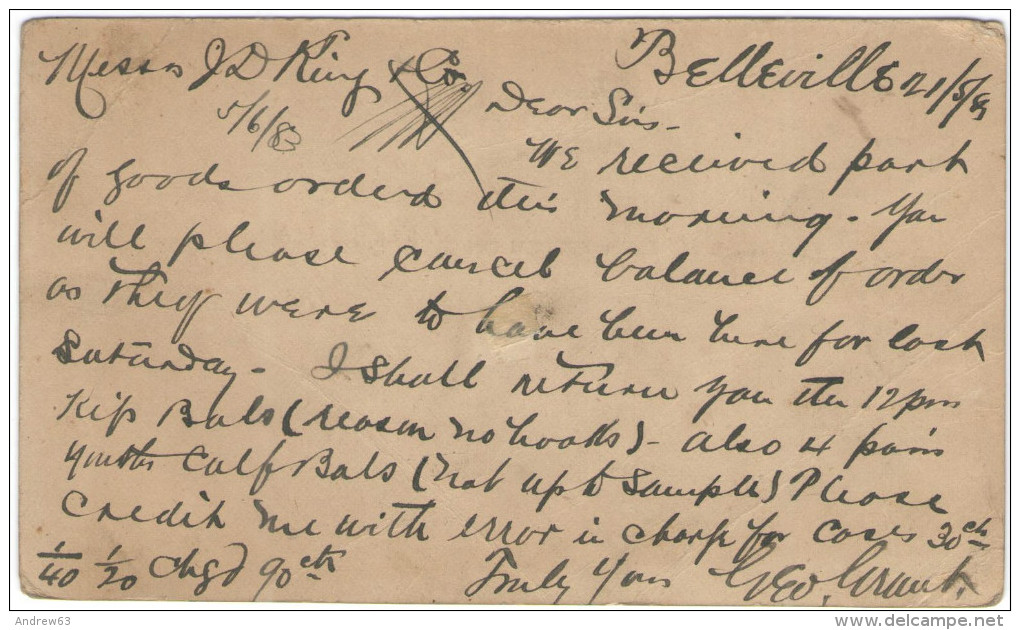 Belleville 21/5/83
Messrs J D King & Co.
5/6/83
Dear Sirs -
We received part
of goods ordered this morning - You
will please cancel balance of order
as they were to have been here for last
Saturday - I shall return you the 12 prs
Kip Bals (reason no hooks) - also 4 pairs
youths Calf Bals (not up to sample) Please
Credit me with error in charge for cases 30cts
1/40 1/20 chgd 90cts
Truly Yours Geo. Grant.
Andrew63
www.delcampe.net